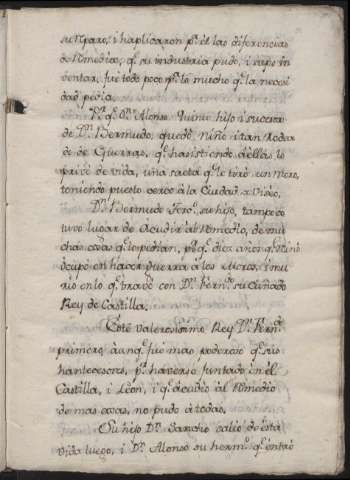 su reparo, i haplicaron pª. el las diferencias
de remedios, qᵉ. su industria pudo, i supo in
ventar; fue todo poco pª. lo mucho qᵉ. la neces
dad pedia.
Pˢ. qᵉ. Dⁿ. Alonso Quinto hijo i succesor
de Dⁿ. Bermudo, quedo niño i tan rodea
do de Guerras, qᵉ. hasistiendo à ellas lo
privò de vida, una saeta qᵉ. le tirò un Moro,
teniendo puesto cerco à la Ciudad de Viseo.
Dⁿ. Bermudo Terº. su hijo, tampoco
tuvo lugar de acudir al Remedio, de mu
chas cosas qᵉ. lo pedian, pˢ. qᵉ. diez años qᵉ. Reinò
ocupò en hacer guerra à los Moros, i mu
rio en lo qᵉ. travò con Dⁿ. Fernᵈᵒ. su Cuñado
Rey de Castilla.
Este valerosissimo Rey Dⁿ. Fernᵈᵒ.
primero, àunqᵉ. fuè mas poderoso qᵉ. sus
hantecesores, pʳ. haverse juntado en èl
Castilla, i Leon, i qᵉ. àcudio al Remedio
de mas cosas, no pudo à todas,
Su hijo Dⁿ. Sancho saliò de esta
vida luego, i Dⁿ. Alonso su hermº. qᵉ. entrò